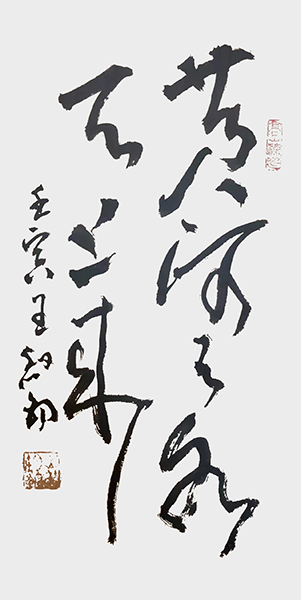 黄河之水
天上来
壬寅王